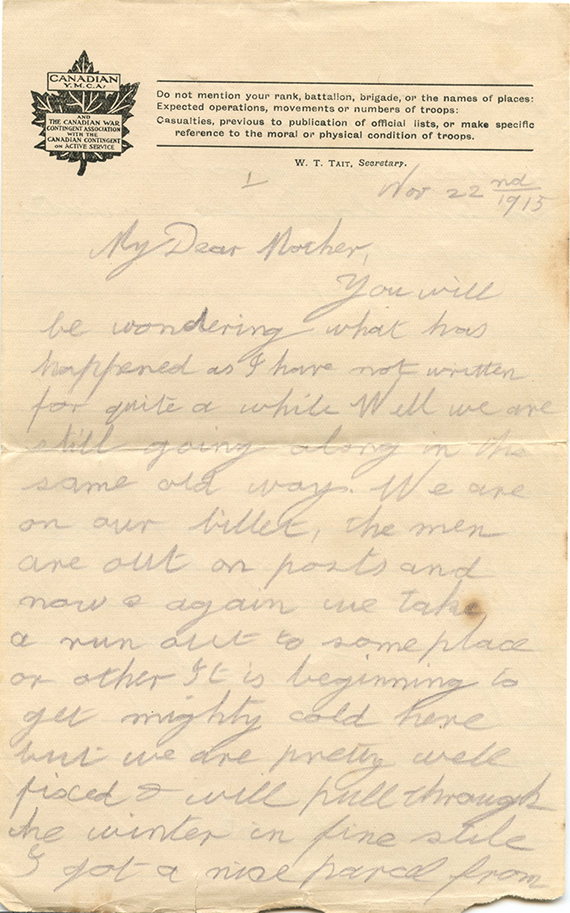 CANADIAN
Y.M.C.A.
AND
THE CANADIAN WAR
CONTINGENT ASSOCIATION
WITH THE
CANADIAN CONTINGENT
ON ACTIVE SERVICE
Do not mention your rank, battalion, brigade, or the names of places:
Expected operations, movements or numbers of troops:
Casualties, previous to publication of official lists, or make specific
reference to the moral or physical condition of troops.
W. T. TAIT, Secretary.
1
Nov 22nd
1915
My Dear Mother,
You will
be wondering what has
happened as I have not written
for quite a while Well we are
still going along in the
same old way. We are
on our billet, the men
are out on posts and
now & again we take
a run out to some place
or other It is beginning to
get mighty cold here
but we are pretty well
fixed & will pull through
the winter in fine stile
I got a nice parcel from